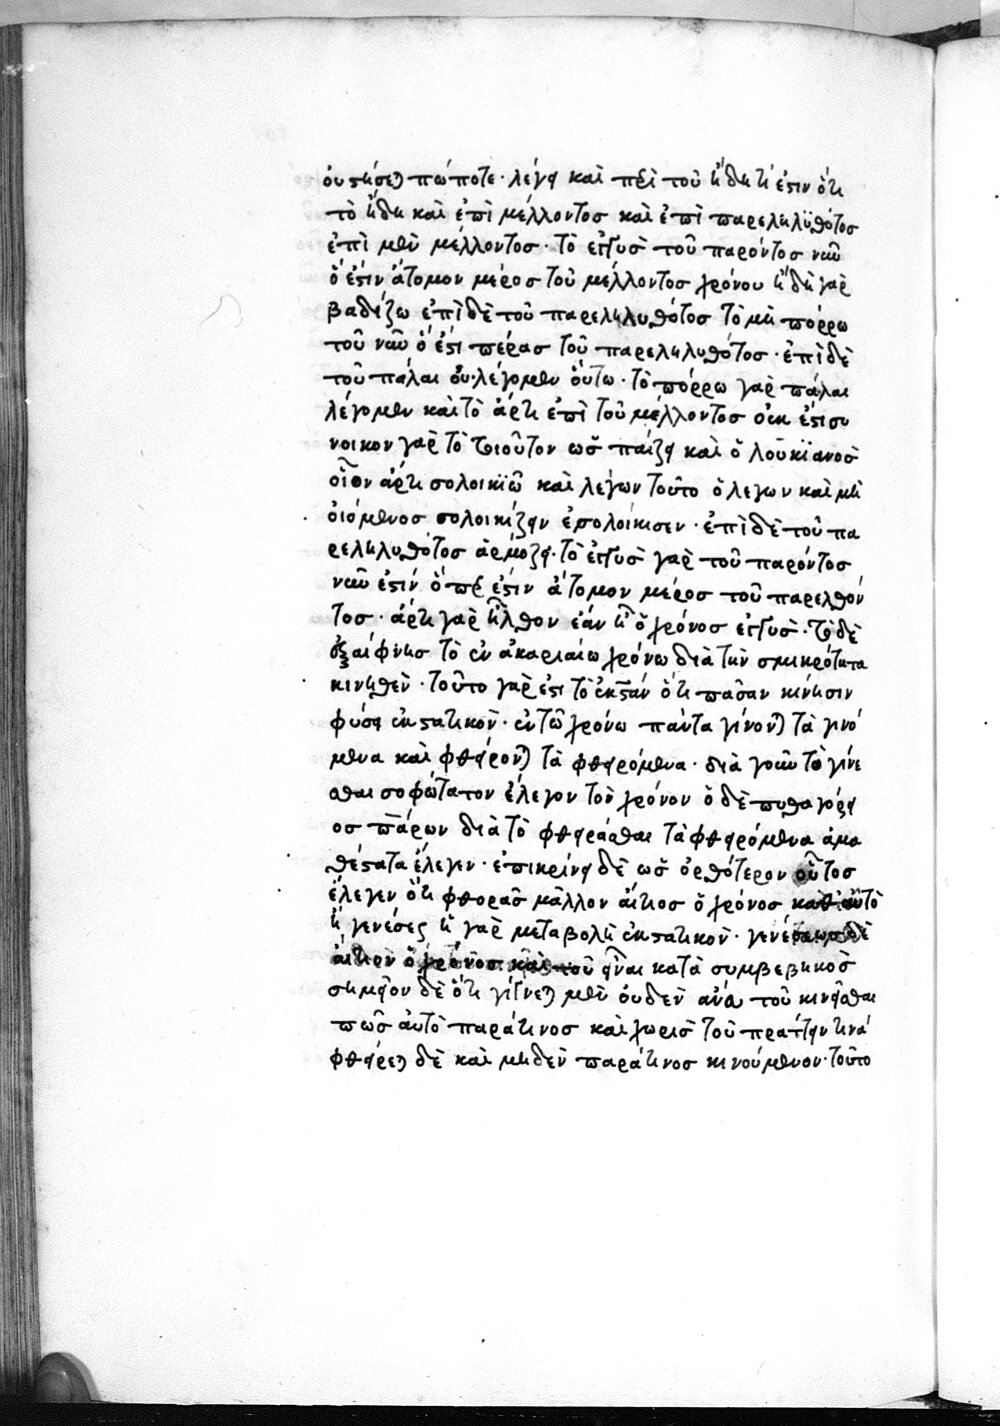 οὐ στήσεται πώποτε· λέγει καὶ περὶ τοῦ ἤδη τί ἐστιν ὅτι
τὸ ἤδη καὶ ἐπὶ μέλλοντος καὶ ἐπὶ παρεληλυθότος
ἐπὶ μὲν μέλλοντος· τὸ ἐγγὺς τοῦ παρόντος νῦν
ὅ ἐστιν ἄτομον μέρος τοῦ μέλλοντος χρόνου ἤδη γὰρ
βαδίζω ἐπὶ δὲ τοῦ παρεληλυθότος τὸ μὴ πόρρω
τοῦ νῦν ὅ ἐστι πέρας τοῦ παρεληλυθότος· ἐπὶ δὲ
τοῦ πάλαι οὐ λέγομεν οὕτω· τὸ πόρρω γὰρ πάλαι
λέγομεν καὶ τὸ ἄρτι ἐπὶ τοῦ μέλλοντος οὐκ ἔστι σό
λοικον γὰρ τὸ τοιοῦτον ὡς παίζει καὶ ὁ λουκϊανὸς
οἷον ἄρτι σολοικϊῶ καὶ λέγων τοῦτο ὁ λέγων καὶ μὴ
οἰόμενος σολοικίζειν ἐσολοίκισεν· ἐπὶ δὲ τοῦ πα
ρεληλυθότος ἁρμόζει· τὸ ἐγγὺς γὰρ τοῦ παρόντος
νῦν ἐστίν ὅπερ ἐστὶν ἄτομον μέρος τοῦ παρελθόν
τος· ἄρτι γὰρ ἦλθον ἐὰν ᾖ ὁ χρόνος ἐγγὺς· τὸ δὲ
ἐξαίφνης τὸ ἐν ἀκαριαίω χρόνω διὰ τὴν σμικρότητα
κινηθὲν· τοῦτο γὰρ ἐστι τὸ ἐκστάν ὅτι πᾶσαν κίνησιν
φύσει ἐκστατικὸν· ἐν τῶ χρόνω πάντα γίνονται τὰ γινό
μενα καὶ φθείρονται τὰ φθειρόμενα· διὰ γοῦν τὸ γίνε
σθαι σοφώτατον ἔλεγον τὸν χρόνον ὁ δὲ πυθαγόρει
ος πάρων διὰ τὸ φθείρεσθαι τὰ φθειρόμενα ἀμα
θέστατα ἔλεγεν· ἐπικρίνει δὲ ὡς ὀρθότερον οὗτος
ἔλεγεν ὅτι φθορᾶς μᾶλλον αἴτιος ὁ χρόνος καθ' αὑτὸ
ἢ γενέσεως ἡ γὰρ μεταβολὴ ἐκστατικὸν· γενέσεως δὲ
αἴτιον ὁ χρόνος καὶ τοῦ εἶναι κατὰ συμβεβηκὸς
σημεῖον δὲ ὅτι γίγνεται μὲν οὐδὲν ἄνευ τοῦ κινεῖσθαι
πῶς αὐτὸ παρά τινος καὶ χωρὶς τοῦ πράττειν τινά
φθείρεται δὲ καὶ μηδὲν παρά τινος κινούμενον· τοῦτο